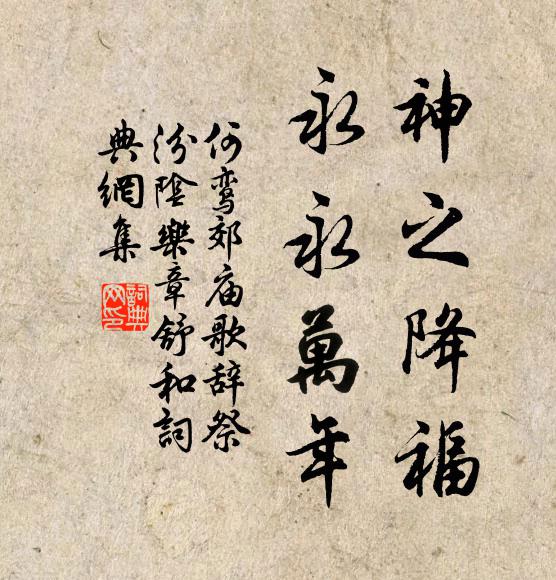 神之降福
永永萬年
何鸾郊庙歌辞祭
汾陰樂章舒和詞
典網集
詞典網印